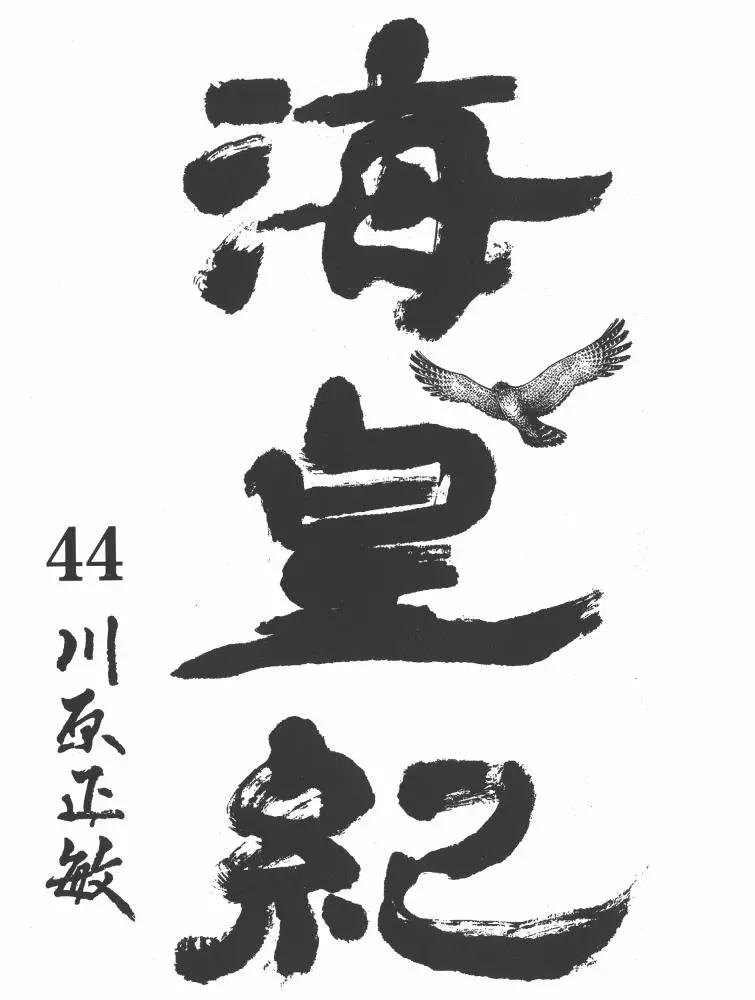 海皇紀
44
川原正敏